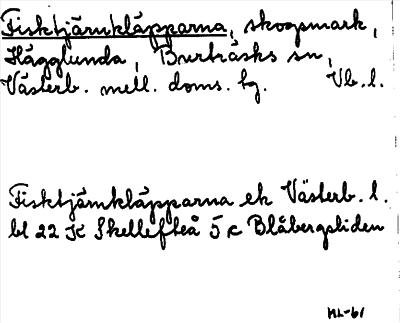 Fisktjärnkläpparna, skogsmark,
Hägglunda, Burträsks sn,
Västerb. mell. doms. hg. Vb. l.
Fisktjärnkläpparna ek Västerb. l.
bl 22 K Skellefteå 5 c Blåbergsliden
ML-61